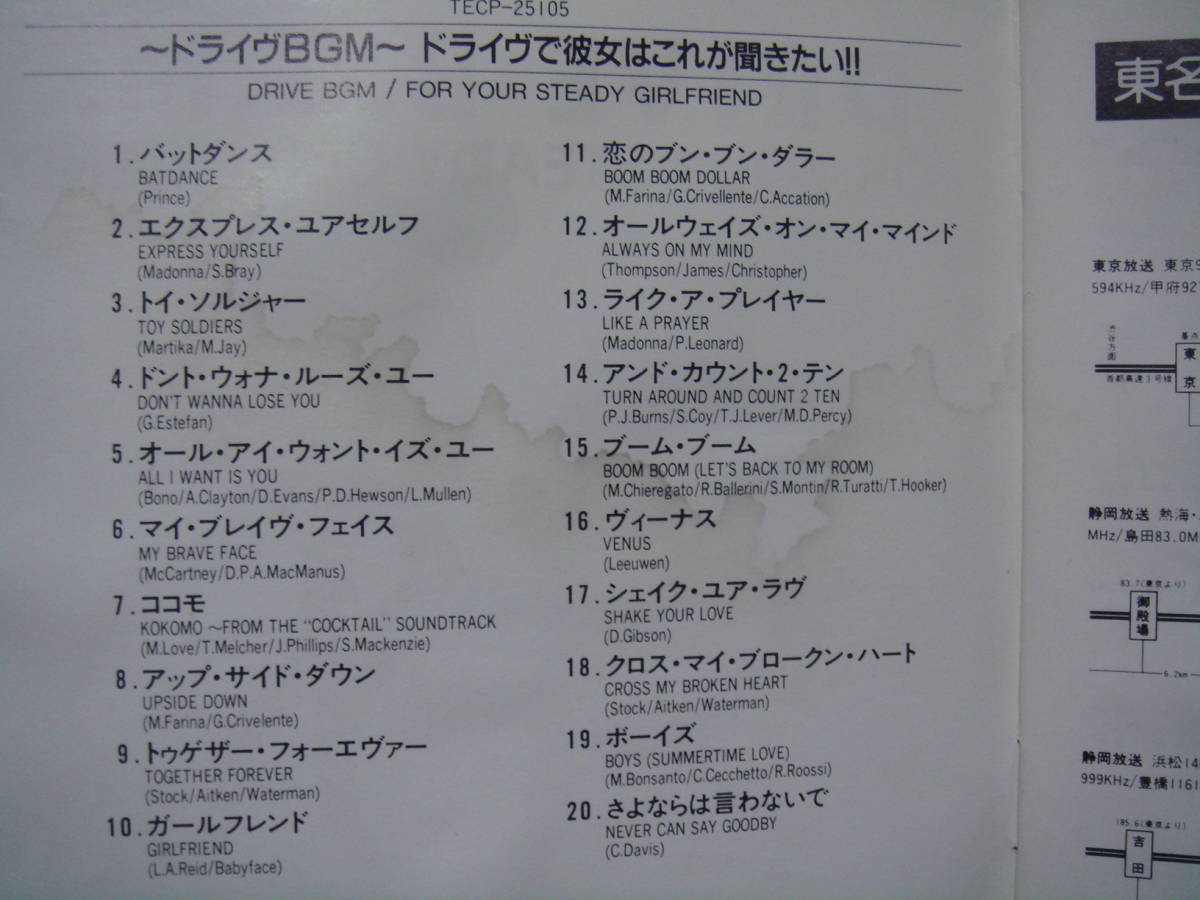 TECP-25105
~ドライヴBGM~ ドライヴで彼女はこれが聞きたい!!
DRIVE BGM / FOR YOUR STEADY GIRLFRIEND
1.バットダンス
BATDANCE
(Prince)
2.エクスプレス・ユアセルフ
EXPRESS YOURSELF
(Madonna/S.Bray)
3.トイ・ソルジャー
TOY SOLDIERS
(Martika/M.Jay)
4.ドント・ウォナ・ルーズ・ユー
DON'T WANNA LOSE YOU
(G.Estefan)
5.オール・アイ・ウォント・イズ・ユー
ALL I WANT IS YOU
(Bono/A.Clayton/D.Evans/P.D.Hewson/L.Mullen)
6.マイ・ブレイヴ・フェイス
MY BRAVE FACE
(McCartney/D.P.A.MacManus)
7.ココモ
KOKOMO ~FROM THE "COCKTAIL" SOUNDTRACK
(M.Love/T.Melcher/J.Phillips/S.Mackenzie)
8.アップ・サイド・ダウン
UPSIDE DOWN
(M.Farina/G.Crivelente)
9.トゥゲザー・フォーエヴァー
TOGETHER FOREVER
(Stock/Aitken/Waterman)
10.ガールフレンド
GIRLFRIEND
(L.A.Reid/Babyface)
11.恋のブン・ブン・ダラー
BOOM BOOM DOLLAR
(M.Farina/G.Crivellente/C.Accation)
12.オールウェイズ・オン・マイ・マインド
ALWAYS ON MY MIND
(Thompson/James/Christopher)
13.ライク・ア・プレイヤー
LIKE A PRAYER
(Madonna/P.Leonard)
14.アンド・カウント・2・テン
TURN AROUND AND COUNT 2 TEN
(P.J.Burns/S.Coy/T.J.Lever/M.D.Percy)
15.ブーム・ブーム
BOOM BOOM (LET'S BACK TO MY ROOM)
(M.Chieregato/R.Ballerini/S.Montin/R.Turatti/T.Hooker)
16.ヴィーナス
VENUS
(Leeuwen)
17.シェイク・ユア・ラヴ
SHAKE YOUR LOVE
(D.Gibson)
18.クロス・マイ・ブロークン・ハート
CROSS MY BROKEN HEART
(Stock/Aitken/Waterman)
19.ボーイズ
BOYS (SUMMERTIME LOVE)
(M.Bonsanto/C.Cecchetto/R.Roossi)
20.さよならは言わないで
NEVER CAN SAY GOODBY
(C.Davis)
東名
東京放送 東京9
594KHz/甲府927
渋谷方面
首都高速3号線
東京
静岡放送 熱海・
MHz/島田83.0M
83.7(東京より)
御殿場
6.2km
静岡放送 浜松14
999KHz/豊橋1161
185.6(東京より)
吉田